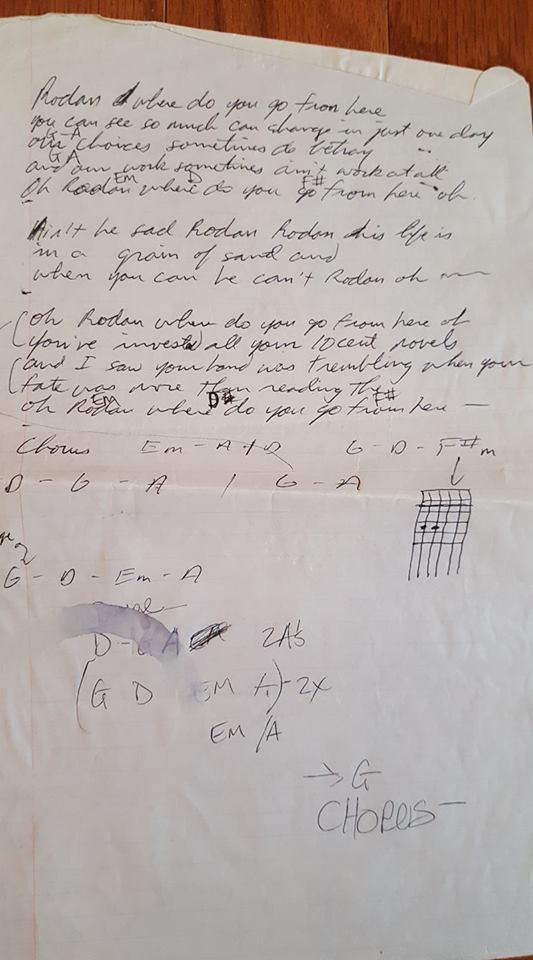 Rodan where do you go from here
you can see so much can change in just one day
G A
our choices sometimes do betray
G A
and our work sometimes ain't work at all
EM D F#
Oh Rodan where do you go from here oh
Ain't he sad Rodan Rodan his life is
in a grain of sand and
when you can he can't Rodan oh
(oh Rodan where do you go from here oh
(you've invested all your 10 cent novels
(and I saw your hand was trembling when your
fate was more than reading the
EM D# F#
oh Rodan where do you go from here —
Chorus Em - A + D G - D - F#m
D - G - A / G - A
2
G - D - Em - A
D - G A 2A's
(G D EM A) - 2X
EM/A
→ G
CHORUS —